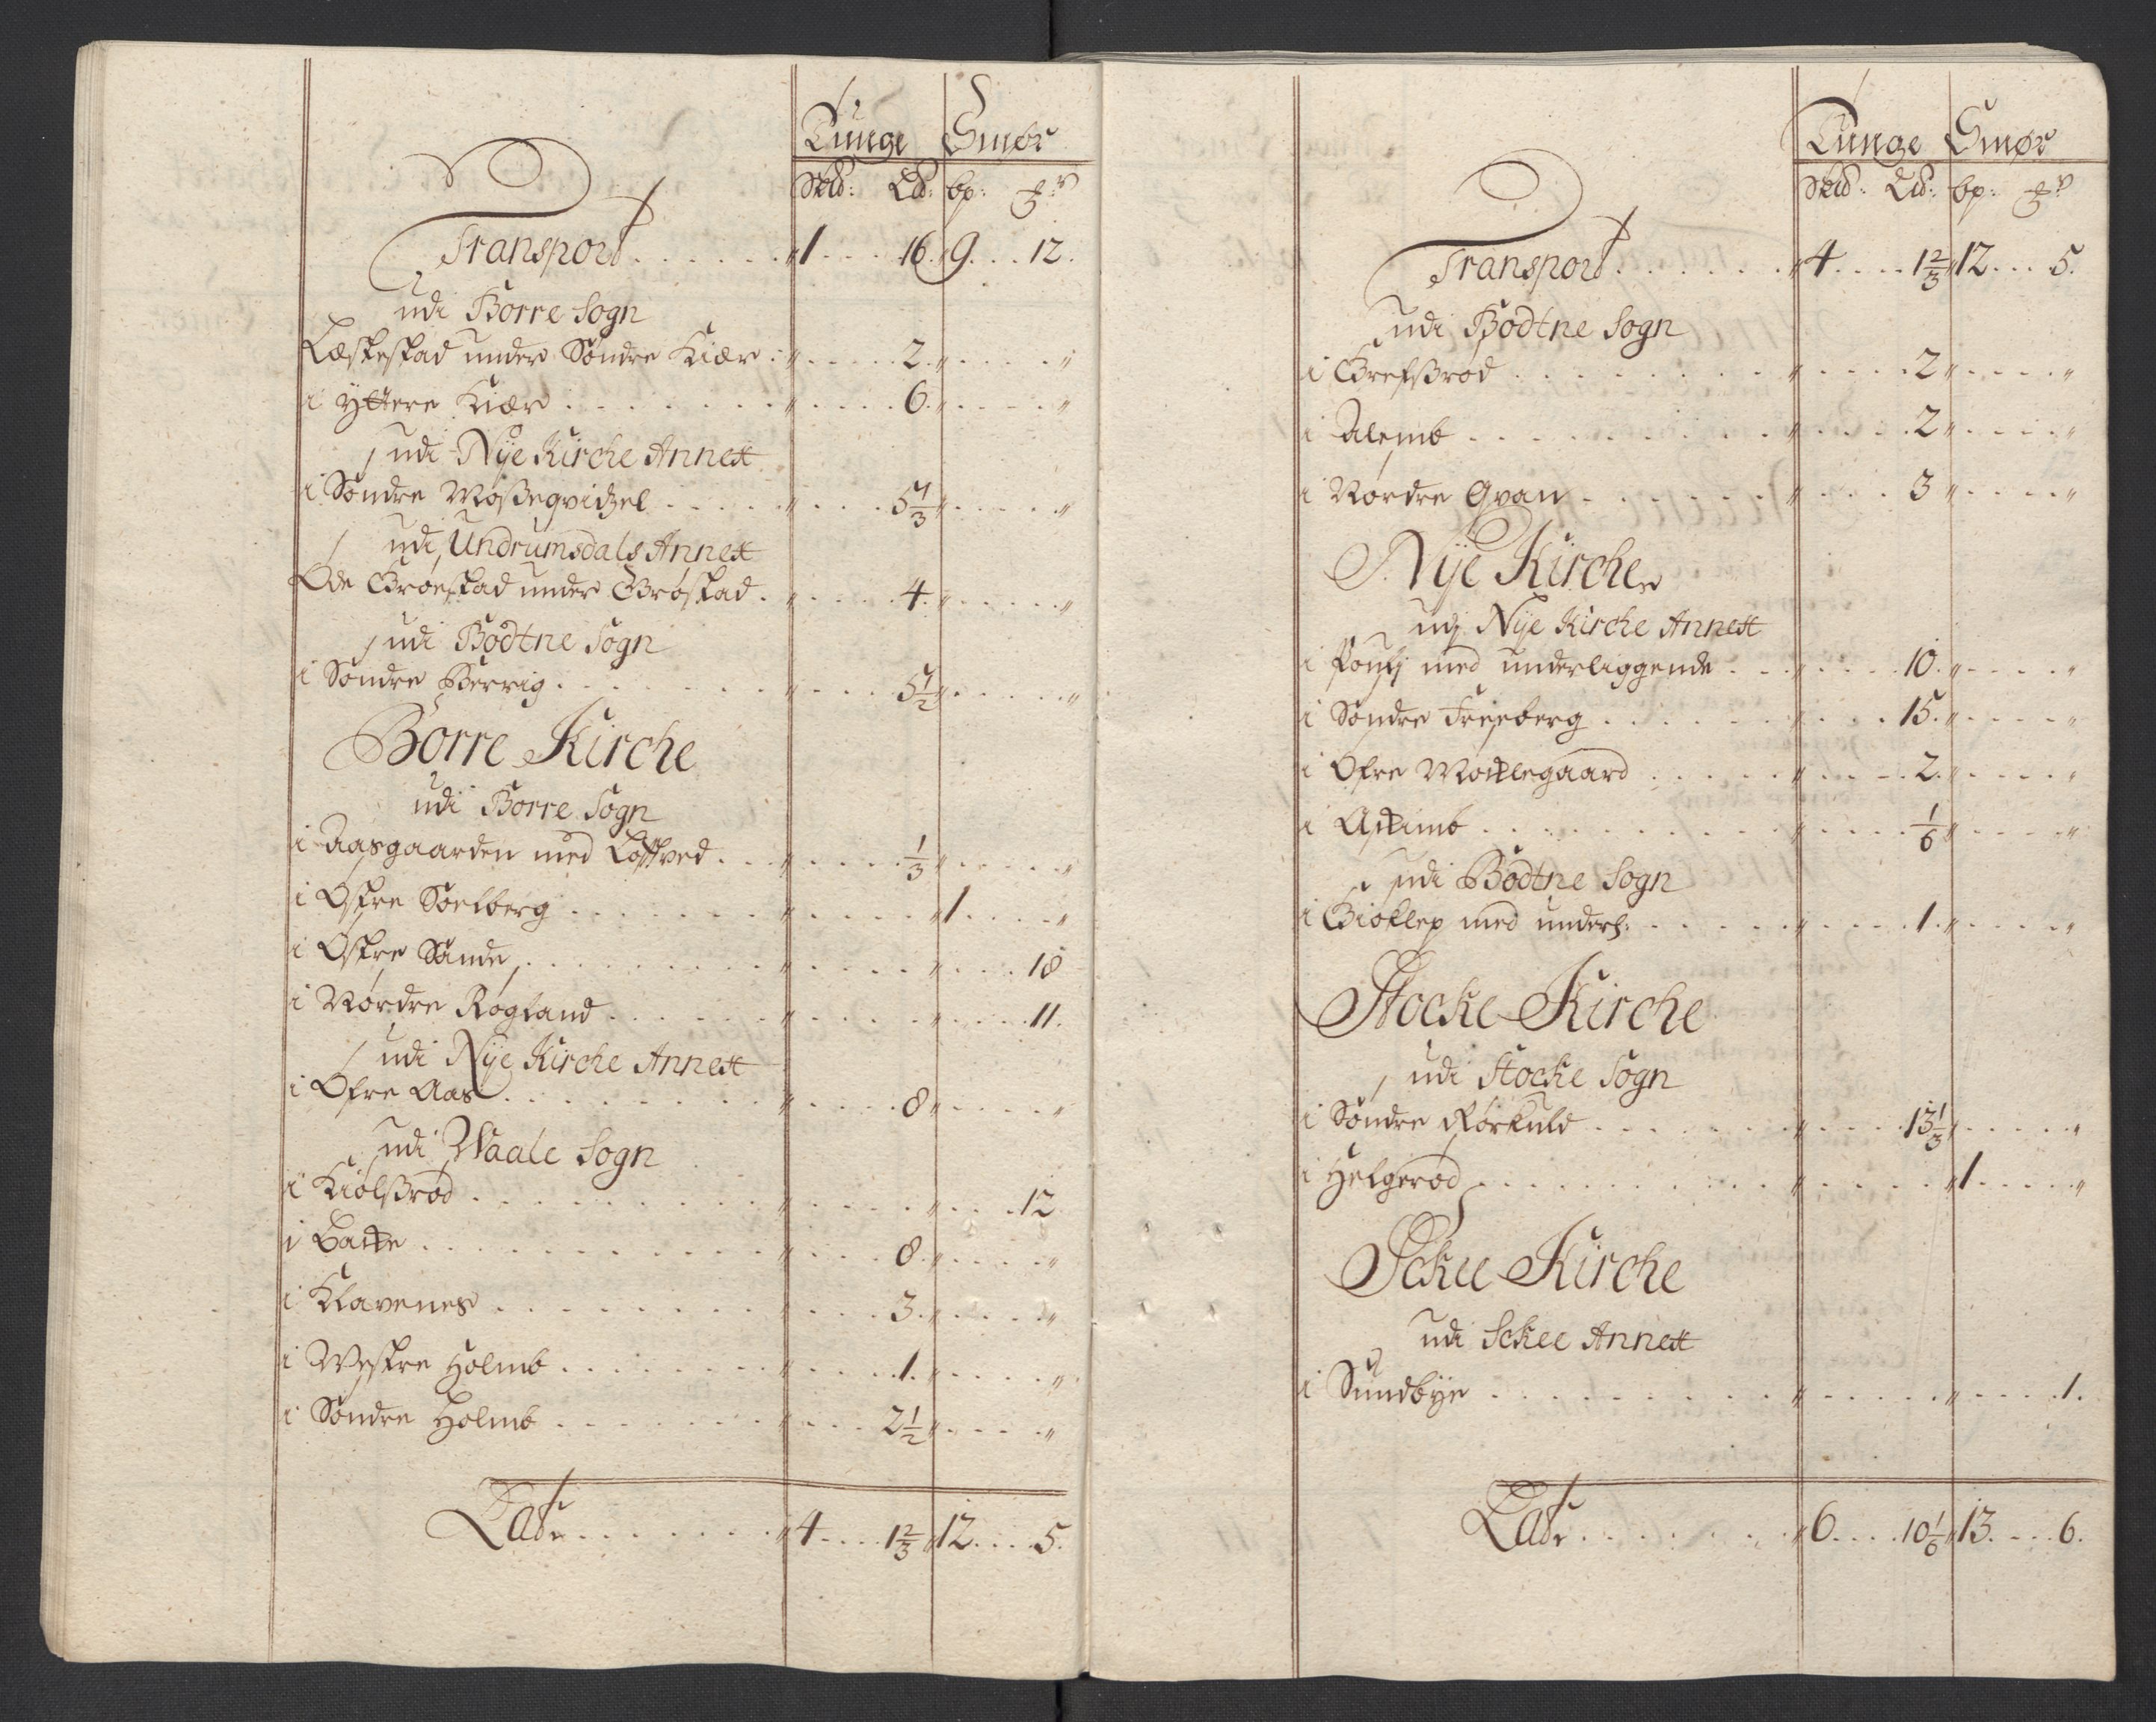 Tunge Smør
Skd: Ld: bp: 
Transport . . . . . . 1 . . . 16. 9 . . . 12.
udi Borre Sogn
Læskestad under Søndre Kiær : . . . . . 2.
i Yttere Kiær . . . . . . . 6.
udi Nÿe Kirche Annext
i Søndre . . . . . 5 1/3
udi Undrumsdals Annext
Øde Grøestad under Grøstad . . . . . 4.
udi Bodtne Sogn
i Søndre Berrig . . . . . . . 5 1/2
Borre Kirche
udi Borre Sogn
i Aasgaarden med . . . 1/3
i Østre Soelberg . . . . . . . 1
i Østre Sande . . . . . . . . . 18
i Nordre Rogland . . . . . . . 11.
udi Nÿe Kirche Annext
i Øfre Aas . . . . . . . . . 8
udi Waale Sogn
i Kiølsrød . . . . . . . . . 12
i Batte . . . . . . . . . . . 8.
i Klavenes . . . . . . . . . 3.
i Westre Holmb . . . . . . . 1.
i Søndre Holmb . . . . . . . 2 1/2
Late . . . . . . . 4 . . . 1 2/3 12 . . . 5.
Tunge Smør
Skd: Ld: bp: 
Transport . . . . . . 4 . . . . 1 2/3 12 . . . 5.
udi Bodtne Sogn
i Grefsrød . . . . . . . . . 2
i Alemb . . . . . . . . . . 2
i Nordre Qvan . . . . . . . 3
Nÿe Kirche
udj Nÿe Kirche Annext
i med underliggende . . . 10.
i Søndre Freeberg . . . . . . 15.
i Øfre Mollegaard . . . . . 2.
i . . . . . . . . . . 1/6
udi Bodtne Sogn
i Gioklep med underl: . . . . . 1.
Stocke Kirche
udi Stocke Sogn
i Søndre Rørkuld . . . . . . . 13 1/3
i Helgerød . . . . . . . . . . 1
Sckee Kirche
udi Sckee Annext
i Sundbÿe . . . . . . . . . 1.
Late . . . . . . . 6 . . . . 10 1/6 13 . . . 6.